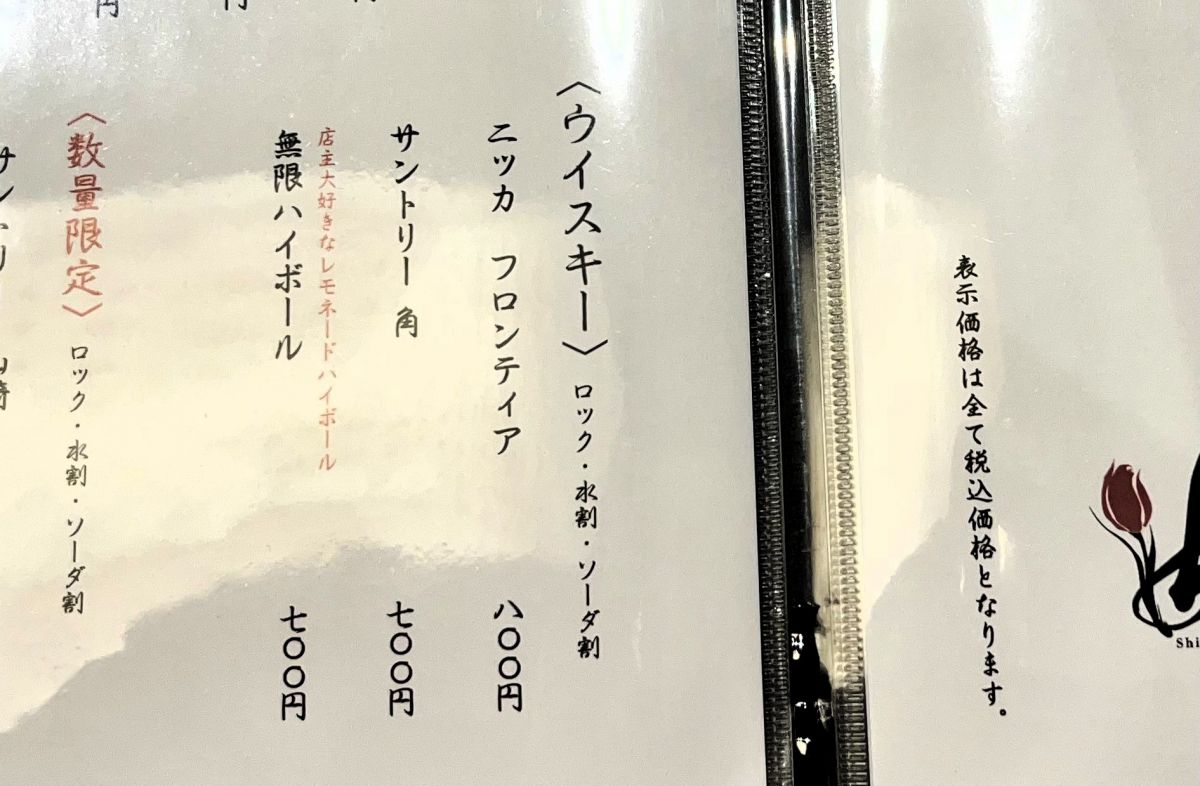 表示価格は全て税込価格となります。
Shi
〈ウイスキー〉 ロック・水割・ソーダ割
ニッカ フロンティア 八〇〇円
サントリー 角 七〇〇円
店主大好きなレモネードハイボール
無限ハイボール 七〇〇円
〈数量限定〉 ロック・水割・ソーダ割
円
円